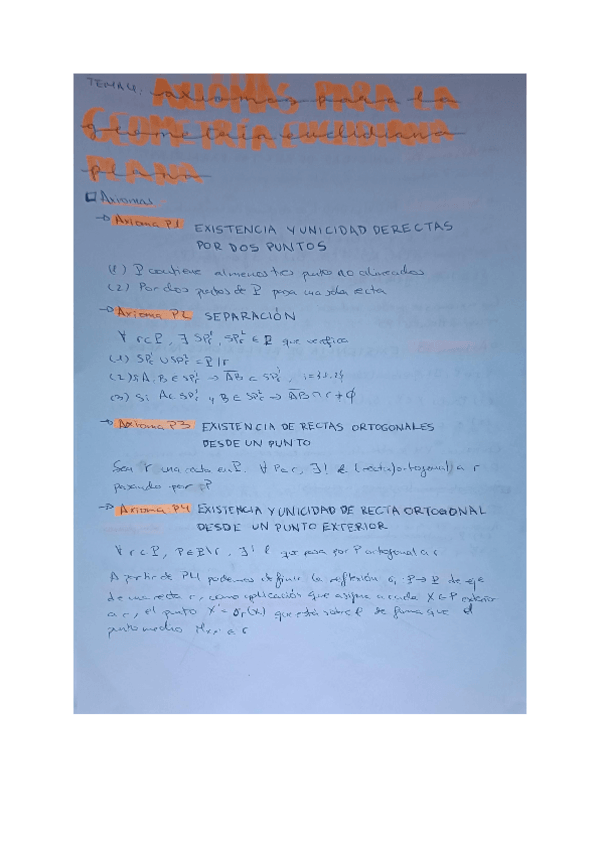 TEMA 4: AXIOMAS PARA LA
GEOMETRÍA EUCLIDIANA
PLANA
Axiomas
→ Axioma P1 EXISTENCIA Y UNICIDAD DE RECTAS
POR DOS PUNTOS
(1) P contiene al menos tres punto no alineados
(2) Por dos puntos de P pasa una sola recta
→ Axioma P2 SEPARACIÓN
∀ r ⊂ P, ∃ SPr¹, SPr² ∈ P que verifica
(1) SPr¹ ∪ SPr² = P \ r
(2) si A, B ∈ SPrⁱ → AB ⊂ SPrⁱ, i = {1, 2}
(3) Si A ∈ SPr¹ y B ∈ SPr² → AB ∩ r ≠ ∅
→ Axioma P3 EXISTENCIA DE RECTAS ORTOGONALES
DESDE UN PUNTO
Sea r una recta en P. ∀ P ∈ r, ∃! l (recta) ortogonal a r
pasando por P
→ Axioma P4 EXISTENCIA Y UNICIDAD DE RECTA ORTOGONAL
DESDE UN PUNTO EXTERIOR
∀ r ⊂ P, P ∈ P \ r, ∃! l que pasa por P ortogonal a r
A partir de P4 podemos definir la reflexión σr: P → P de eje
de una recta r, como aplicación que asigna a cada X ∈ P exterior
a r, el punto X' = σr(X) que está sobre l de forma que el
punto medio a r